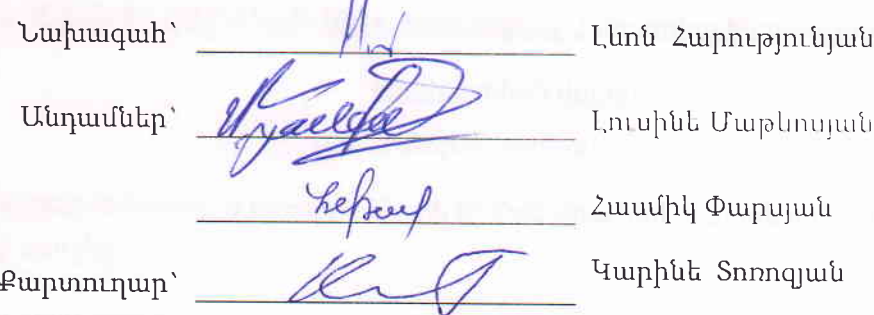 Նախագահ՝ Լևոն Հարությունյան
Անդամներ՝ Լուսինե Մաթևոսյան
Հասմիկ Փարսյան
Քարտուղար՝ Կարինե Տոռոզյան